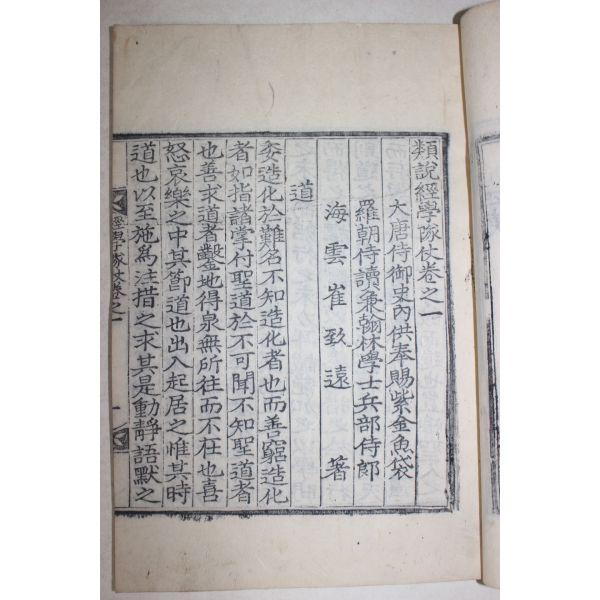 類說經學隊仗卷之一
大唐侍御史內供奉賜紫金魚袋
羅朝侍讀兼翰林學士兵部侍郎
海雲崔致遠 著
道
委造化於難名不知造化者也而善窮造化
者如指諸掌付聖道於不可聞不知聖道者
也善求道者鑿地得泉無所往而不在也喜
怒哀樂之中其節道也出入起居之惟其時
道也以至施爲注措之求其是動靜語默之
經學隊仗卷之一 一